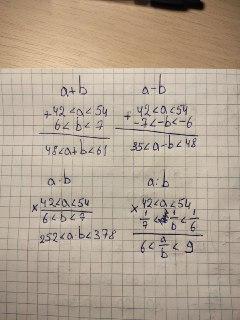 a+b
+ 42<a<54
6<b<7
48<a+b<61
a-b
+ 42<a<54
-7<-b<-6
35<a-b<48
a·b
× 42<a<54
6<b<7
252<a·b<378
a:b
× 42<a<54
1/7<1/b<1/6
6<a/b<9